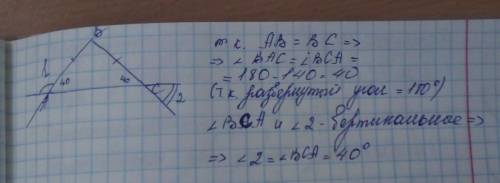 B
т.к. AB = BC =>
=> ∠BAC = ∠BCA =
1
= 180 - 140 = 40
40
40
C
2
A
(т.к развернутый угол = 180°)
∠BCA и ∠2 - вертикальное =>
=> ∠2 = ∠BCA = 40°